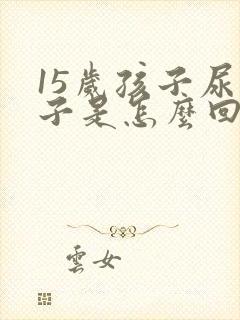 15歲孩子尿
子是怎麼回
雲女